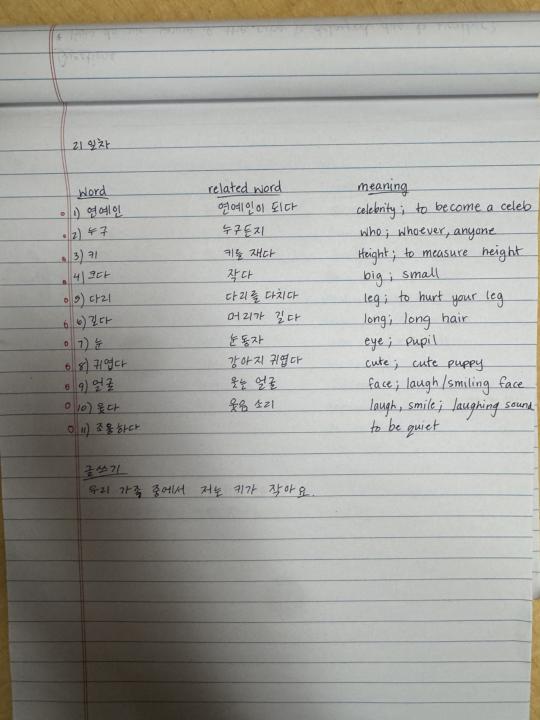 21일차
word related word meaning
1) 연예인 연예인이 되다 celebrity; to become a celeb
2) 누구 누구든지 who; whoever, anyone
3) 키 키를 재다 Height; to measure height
4) 크다 작다 big; small
5) 다리 다리를 다치다 leg; to hurt your leg
6) 길다 머리가 길다 long; long hair
7) 눈 눈동자 eye; pupil
8) 귀엽다 강아지 귀엽다 cute; cute puppy
9) 얼굴 웃는 얼굴 face; laugh/smiling face
10) 웃다 웃음 소리 laugh, smile; laughing sound
11) 조용하다 to be quiet
글쓰기
우리 가족 중에서 저는 키가 작아요.